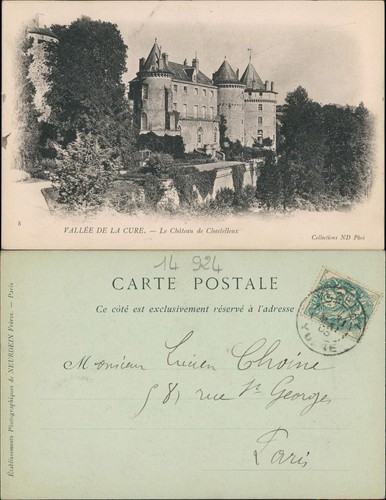 8
VALLÉE DE LA CURE. — Le Château de Chastellux
Collections ND Phot
14 924
CARTE POSTALE
Ce côté est exclusivement réservé à l'adresse
Établissements Photographiques de NEURDEIN Frères. — Paris
Monsieur Lucien Choine
58 rue St Georges
Paris